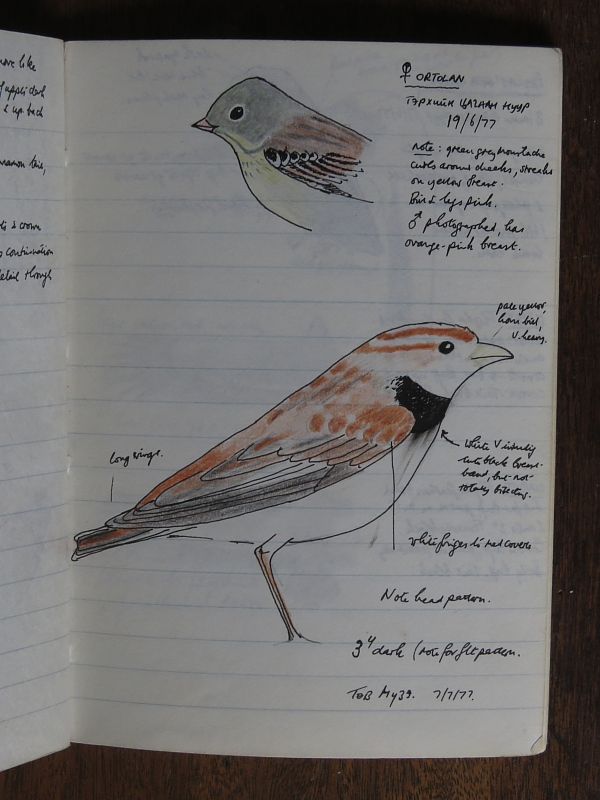 ove like
& up. back
s continuation
detail through
♀ ORTOLAN
ТЭРХИЙН ЦАГААН НУУР
19/6/77
Note: green grey moustache
curls around cheeks, streaks
on yellow breast.
Bill & legs pink.
♂ photographed, has
orange-pink breast.
pale yellow,
horn bill,
v. heavy.
long wings.
white V visibly
into black breast-
band, but not
totally bisecting.
white fringes to red coverts
Note head pattern.
dark (note for flt pattern.
ТОВ 7/7/77.